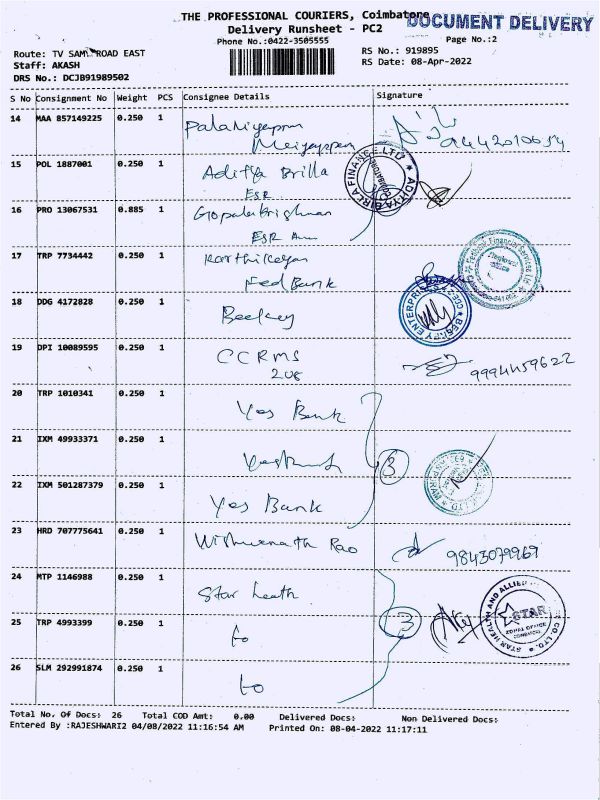 THE PROFESSIONAL COURIERS, Coimbatore
DOCUMENT DELIVERY
Delivery Runsheet - PC2
Phone No.:0422-3505555
Page No.:2
Route: TV SAMI ROAD EAST
RS No.: 919895
Staff: AKASH
RS Date: 08-Apr-2022
DRS No.: DCJB91989502
S No Consignment No Weight PCS Consignee Details Signature
14 MAA 857149225 0.250 1
Meiyappan
15 POL 1887001 0.250 1 Aditya Brilla
ESR
16 PRO 13067531 0.885 1 Gopalakrishnan
ESR
17 TRP 7734442 0.250 1 Karthikeyan
Fed Bank
18 DDG 4172828 0.250 1
19 DPI 10089595 0.250 1 CCRMS 9994459622
208
20 TRP 1010341 0.250 1 Yes Bank
21 IXM 49933371 0.250 1 Yes Bank
3
22 IXM 501287379 0.250 1 Yes Bank
23 HRD 707775641 0.250 1 Vishwanath Rao 9843079969
24 MTP 1146988 0.250 1 Star Leath
STAR HEALTH AND ALLIED
STAR
ZONAL OFFICE
COIMBATORE
CO. LTD.
25 TRP 4993399 0.250 1 to 3
26 SLM 292991874 0.250 1 to
ADITYA BIRLA FINANCE LTD
BEELEY ENTERPRISES
Total No. Of Docs: 26 Total COD Amt: 0.00 Delivered Docs: Non Delivered Docs:
Entered By :RAJESHWARI2 04/08/2022 11:16:54 AM Printed On: 08-04-2022 11:17:11